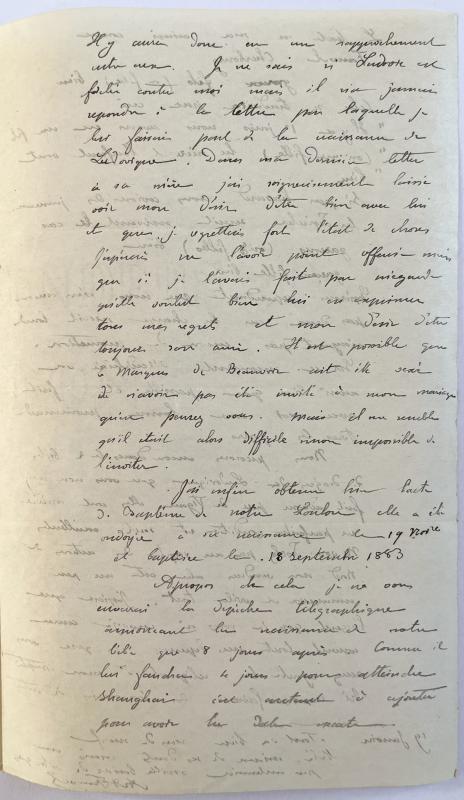 Il y aurait donc eu un rapprochement
entre eux. Je ne sais si est
fâché contre moi mais il n'a jamais
repondu à la lettre par laquelle je
lui faisais part de la naissance de
Dans ma dernière lettre
à sa mère j'ai soigneusement laissé
voir mon désir d'être bien avec lui
et que je regrettais fort l'état de choses
J'espérais ne l'avoir point offensé mais
que si je l'avais fait par mégarde
qu'elle voulut bien lui en exprimer
tous mes regrets et mon désir d'être
toujours son ami. Il est possible que
le Marquis de Beauvoir ait été vexé
de n'avoir pas été invité à mon mariage
qu'en pensez vous. Mais il me semble
qu'il était alors difficile sinon impossible de
l'inviter.
J'ai enfin obtenu l'acte
de Baptême de notre elle a été
ondoyée à sa naissance le 19
et baptisée le 18 septembre 1883
Apropos de cela je ne vous
enverrai la dépêche télégraphique
annonçant la naissance de notre
bébé que 8 jours après. Comme il
lui faudra 4 jours pour atteindre
Shanghai c'est à ajouter
pour avoir la date exacte.